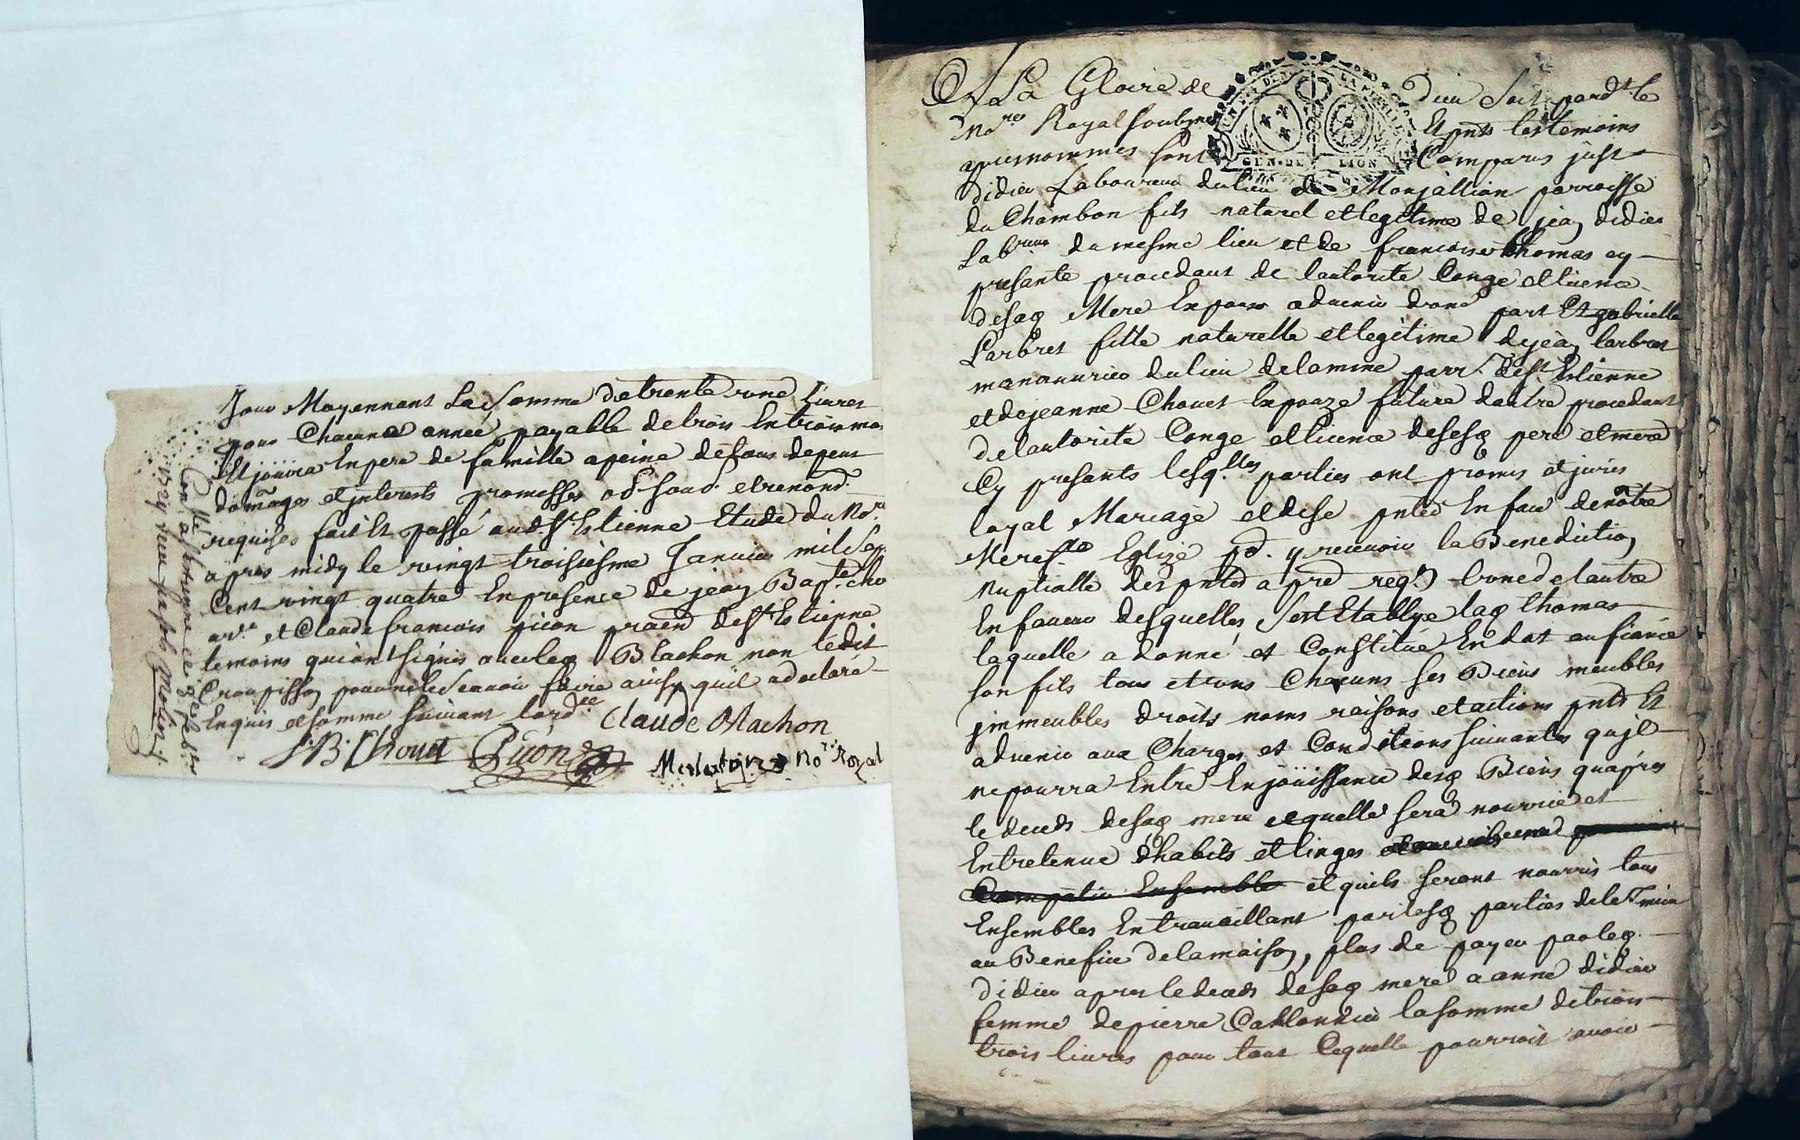 Jour Moyennant La Somme de trente une livres
pour Chacune année payable de trois En trois mo
Et jouira En pere de famille a peine de tous depens
domages et jnterests promesses ob
requises fait Et passé aud. St Estienne Etude du No.re
apres midy le vingt troisiesme Janvier mil Sep
Cent vingt quatre En presence de jean Bapt.e cho
et Claude francois picon de St Estienne
temoins qui ont signés avec leq Blachon non ledit
Croupisson pour ne le Scavoir faire ainsy quil a declaré
Enquis et somme suivant lord.ce
Claude Blachon
J. B. Chouit Picon
No.re Royal
Con.lé a St Estienne ce
1724 Receu six sols
A La Gloire de Dieu Soit pard.t le
No.re Royal soubsigné Et pnts les temoins
apres nommes sont Comparus just
didier Laboureur du lieu de Monjallion parroisse
du Chambon fils naturel et legitime de jean didier
Lab.reur du mesme lieu et de francoise thomas cy
presante procedant de lautorite Congé et licence
de saq Mere Enpoux advenir dune part Et gabrielle
Larbret fille naturelle et legitime de jean larbret
manouvrier du lieu de lamine parr. de St Estienne
et de jeanne Chouet Enpouze future dautre procedant
de lautorite Congé et licence de sesq pere et mere
Cy presants lesq.lles parties ont promis et jurés
loyal Mariage et de se pnter En face de nôtre
Mere S.te Eglize p.r y recevoir la Benediction
nuptialle des pntes a pre req.on Lune de lautre
En faveur desquelles sest Etablye laq thomas
laquelle a donné et Constitué En dot au fiancé
son fils tous et uns Chacuns ses Biens meubles
jmmeubles droits noms raisons et actions pnts Et
advenir aux Charges et Conditions suivantes quil
ne pourra Entré En joüissance desq Biens quapres
le deceds de saq mere laquelle sera nourrie et
Entretenue dhabits et linges
Ensemble et quils seront nourris tous
Ensembles En travaillant par lesq parties de le
au Benefice de la maison, plus de payer par leq
didier apres le deceds de saq mere a anne didier
femme de pierre la somme de trois
trois livres pour tout Ce quelle pourroit avoir